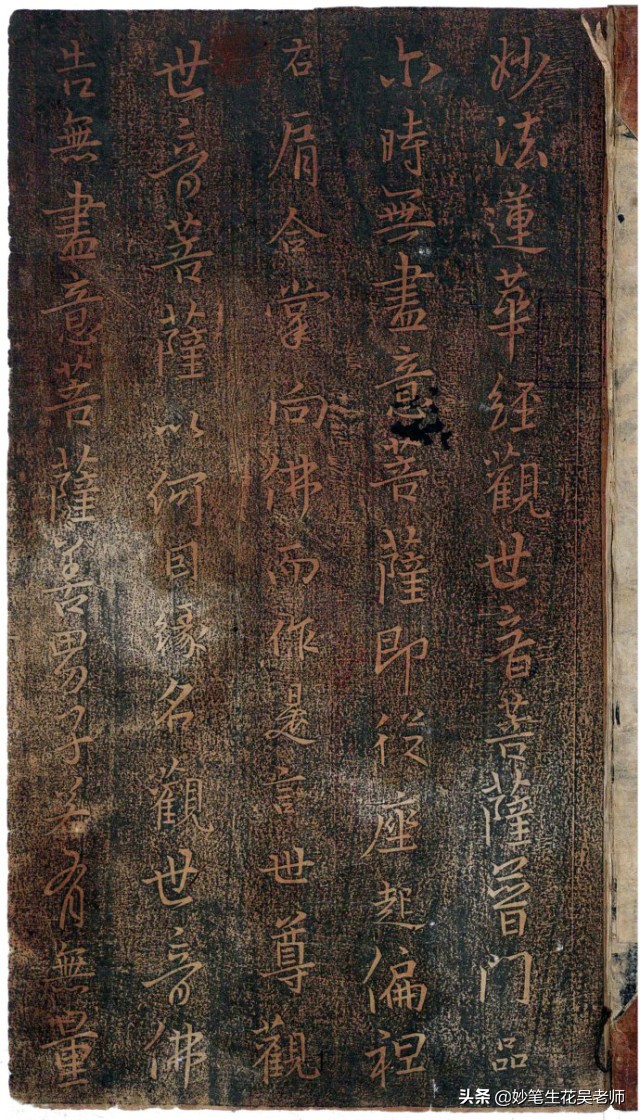 妙法蓮華經觀世音菩薩普門品
尒時無盡意菩薩即從座起偏袒
右肩合掌向佛而作是言世尊觀
世音菩薩以何因緣名觀世音佛
告無盡意菩薩善男子若有無量
头条 @妙笔生花吴老师